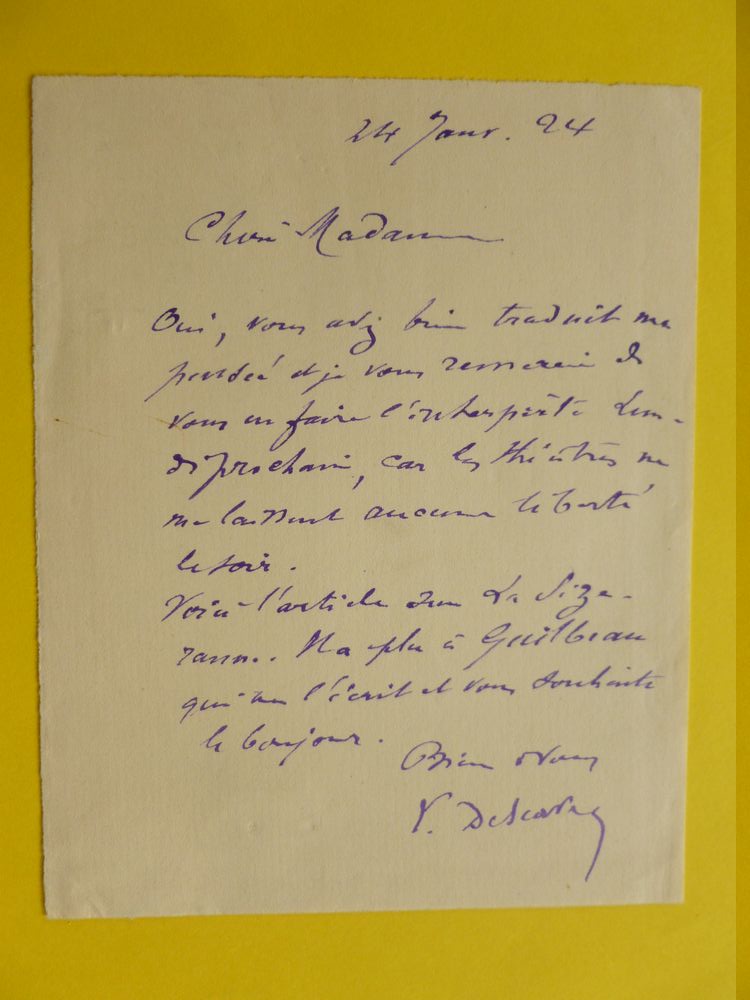 24 Janv. 24
Chère Madame
Oui, vous avez bien traduit ma
pensée et je vous remercie de
vous en faire l'interprète Lun-
di prochain, car les théâtres ne
me laissent aucune liberté
le soir.
Voici l'article sur La Size-
ranne. Il a plu à Guilbeau
qui me l'écrit et vous souhaite
le bonjour.
Bien à vous
L. Descaves